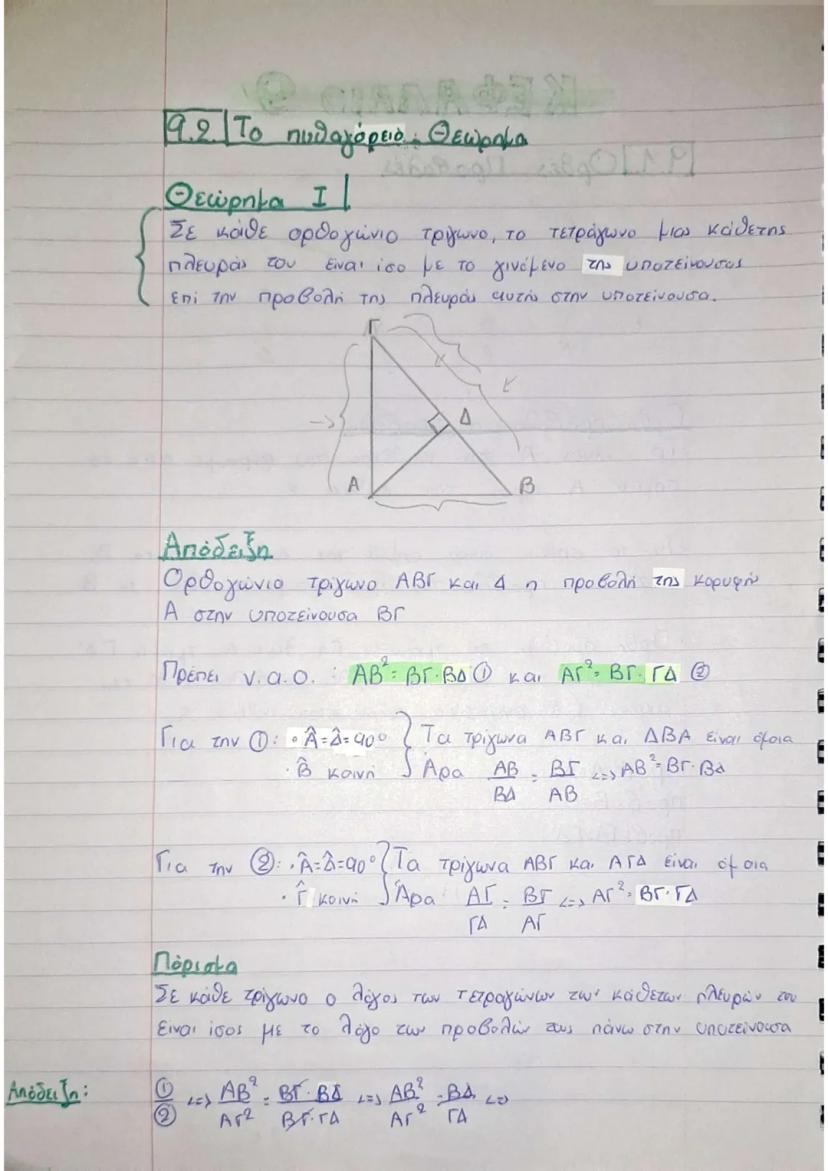 9.2 Το πυθαγόρειο Θεώρημα
Θεώρημα Ι
Σε κάθε ορθογώνιο τρίγωνο, το τετράγωνο μιας κάθετης
πλευράς του είναι ίσο με το γινόμενο της υποτείνουσας
επί την προβολή της πλευράς αυτής στην υποτείνουσα.
Γ
Δ
Α Β
Απόδειξη
Ορθογώνιο τρίγωνο ΑΒΓ και Δ η προβολή της κορυφής
Α στην υποτείνουσα ΒΓ
Πρέπει ν.α.ο. : ΑΒ² = ΒΓ·ΒΔ ① και ΑΓ² = ΒΓ·ΓΔ ②
Για την ①: · Â = Δ̂ = 90° } Τα τρίγωνα ΑΒΓ και ΔΒΑ είναι όμοια
· Β̂ κοινή } Άρα ΑΒ/ΒΔ = ΒΓ/ΑΒ <=> ΑΒ² = ΒΓ·ΒΔ
Για την ②: · Â = Δ̂ = 90° } Τα τρίγωνα ΑΒΓ και ΑΓΔ είναι όμοια
· Γ̂ κοινή } Άρα ΑΓ/ΓΔ = ΒΓ/ΑΓ <=> ΑΓ² = ΒΓ·ΓΔ
Πόρισμα
Σε κάθε τρίγωνο ο λόγος των τετραγώνων των κάθετων πλευρών του
είναι ίσος με το λόγο των προβολών τους πάνω στην υποτείνουσα
Απόδειξη: ①/② <=> ΑΒ²/ΑΓ² = ΒΓ·ΒΔ/ΒΓ·ΓΔ <=> ΑΒ²/ΑΓ² = ΒΔ/ΓΔ <=>